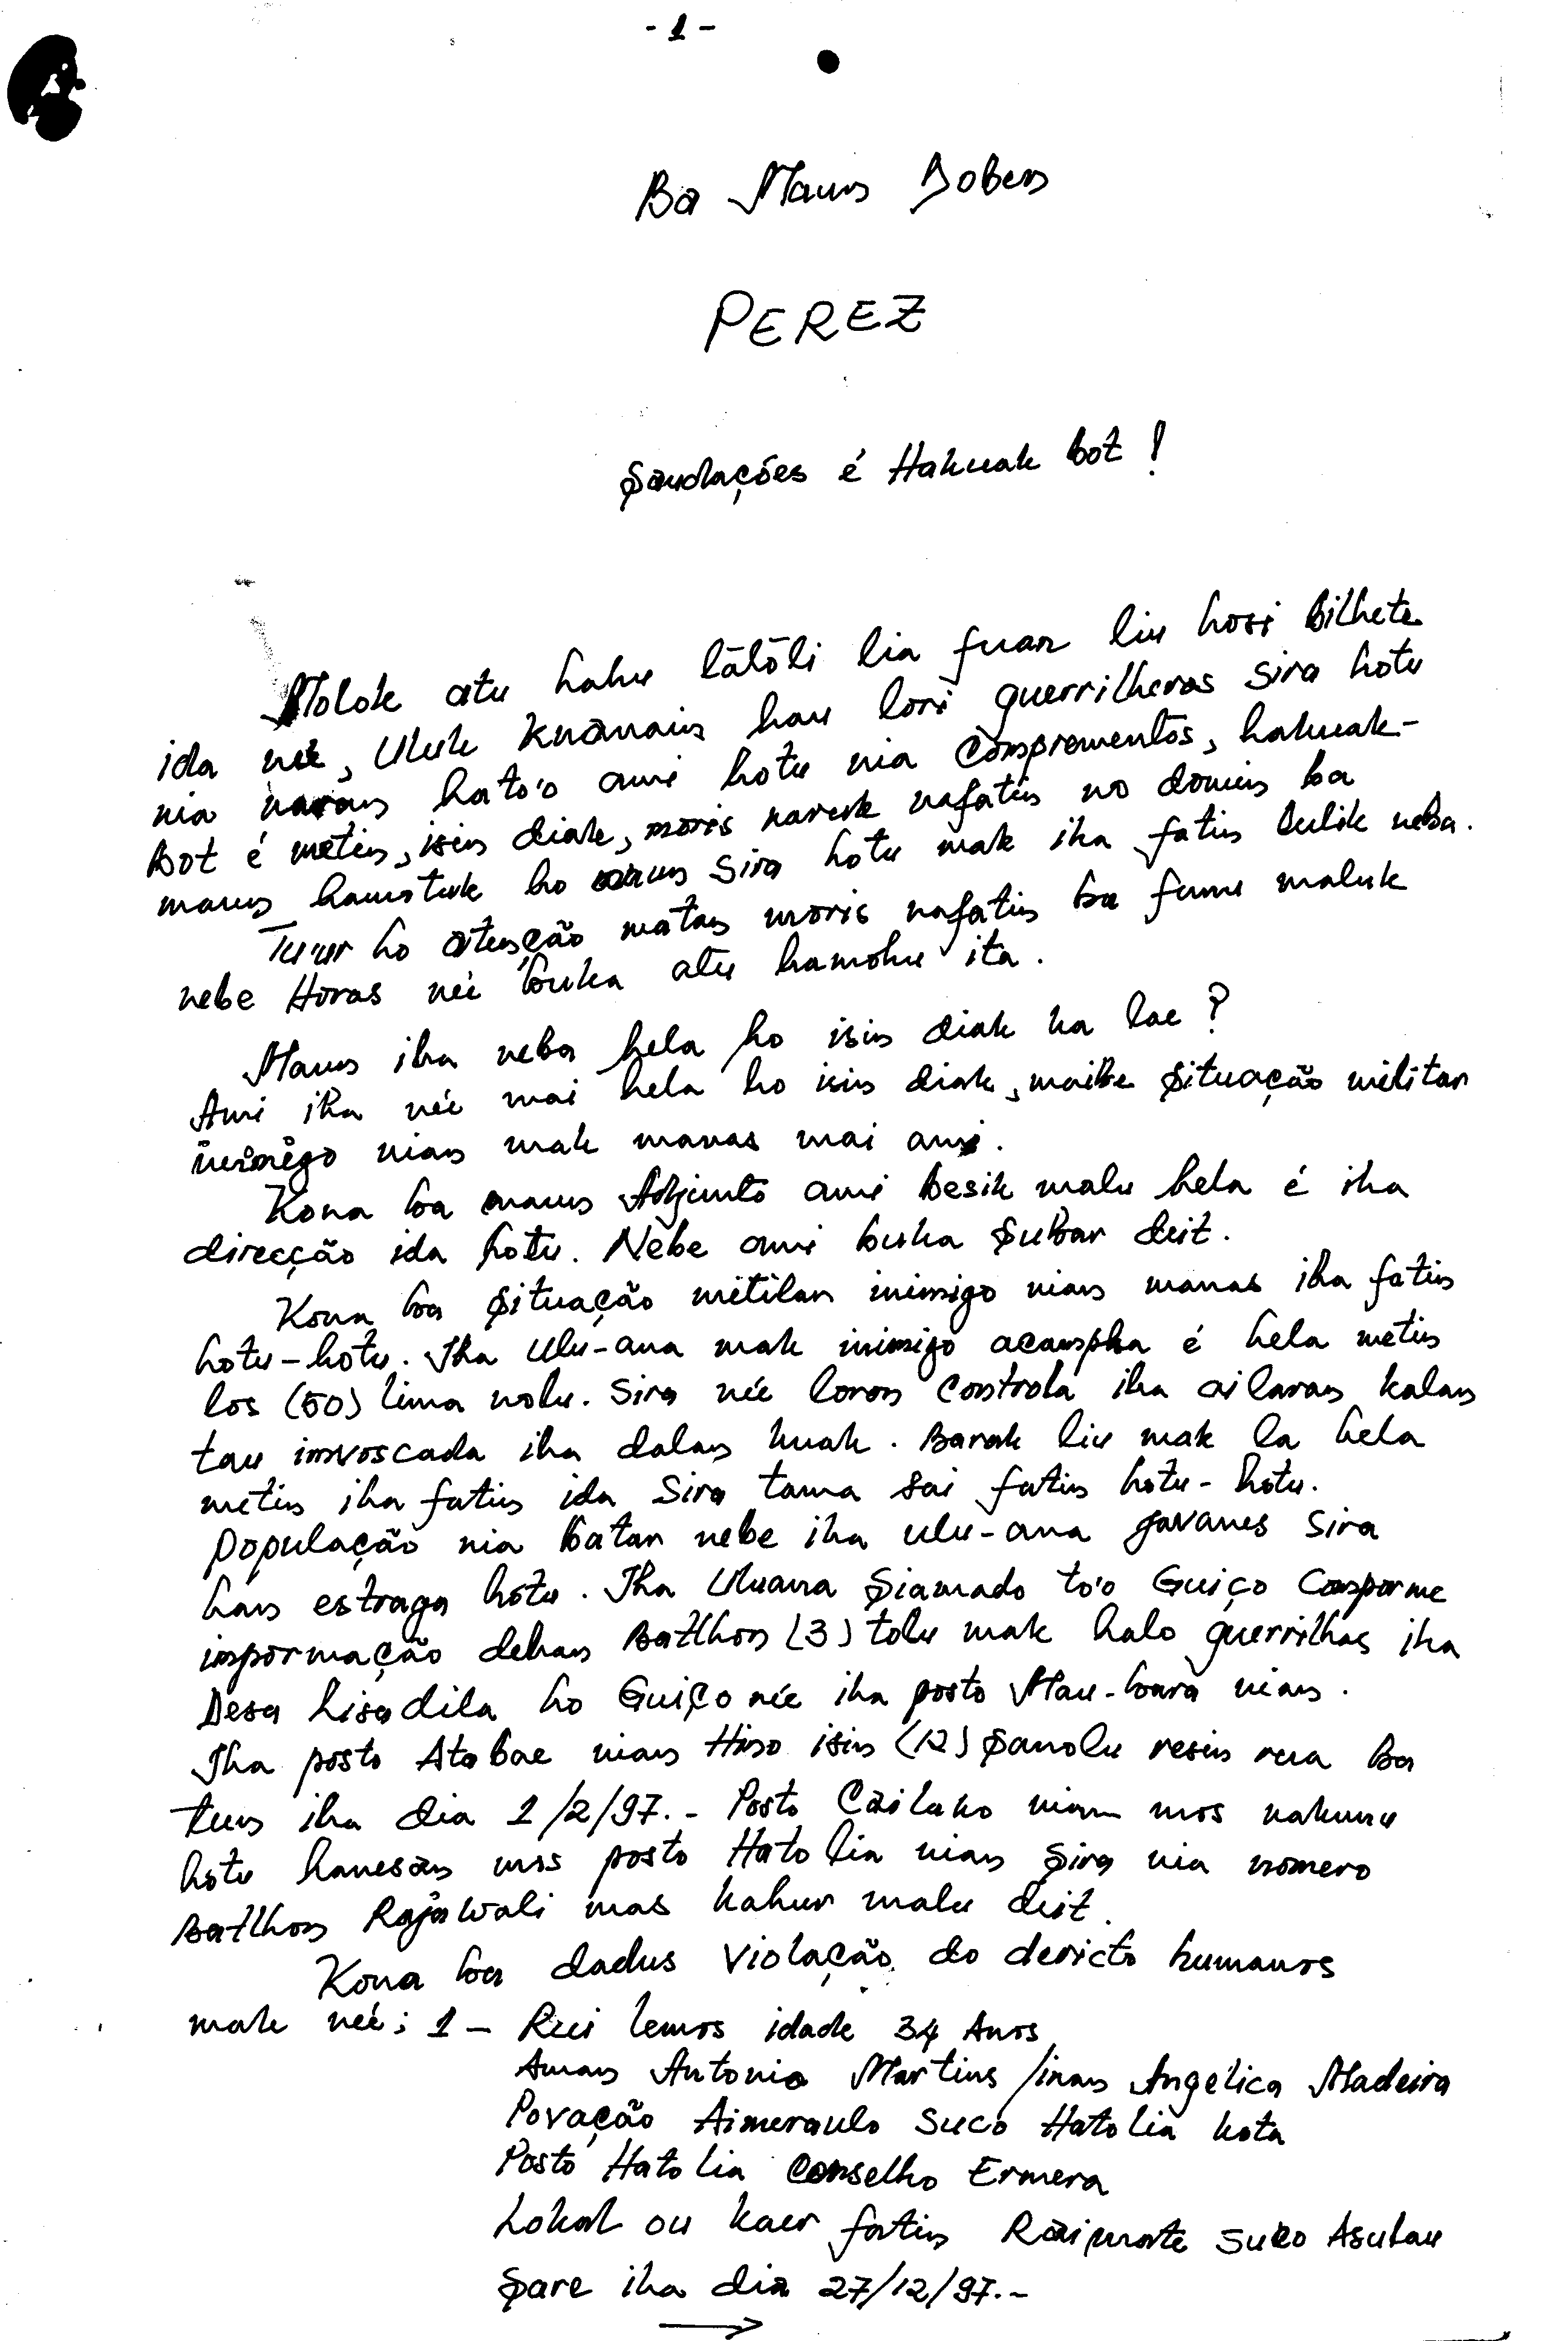 - 1 -
Ba Maun Doben
PEREZ
Saudações é Hakuak bot !
Molok atu hahu lātōli lia fuan liu hosi bilhete
ida neé, Uluk knanain hau lori guerrilheros sira hotu
nia naran hato'o ami hotu nia Comprementos, hakuak-
Bot é metin, isin diak, moris narerk nafatin no domin ba
maun hamutuk ho maun sira hotu mak iha fatin lulik neba.
Tuur ho atenção matan moris nafatin ba funu maluk
nebe Horas neé buka atu hamohu ita.
Maun iha neba hela ho isin diak ka lae ?
Ami iha neé mai hela ho isin diak, maibe Situação militar
inimigo nian mak manas mai ami.
Kona ba maun Adjunto ami besik malu hela é iha
direcção ida hotu. Nebe ami buka Subar deit.
Kona ba Situação mitilar inimigo nian manas iha fatin
hotu-hotu. Iha Ulu-ana mak inimigo acampha é hela metin
los (50) lima nolu. Sira neé loron Controla iha ailaran kalan
tau imvoscada iha dalan kuak. Barak liu mak la hela
metin iha fatin ida Sira tama sai fatin hotu-hotu.
População nia batar nebe iha ulu-ana javanes Sira
han estraga hotu. Iha Uluana Siamado to'o Guiço Comporme
impormação dehan Batlhon (3) tolu mak halo guerrilhas iha
Desa Lisadila ho Guiço neé iha posto Mau-bara nian.
Iha posto Atabae nian Hino isin (12) Sanolu resin rua ba
tun iha dia 1/2/97.- Posto Cailako nian mos nakunu
hotu hanesan mos posto Hatolia nian Sira nia nomero
Batlhon Rajawali mas kahur malu deit.
Kona ba dadus Violação do dericto humanos
mak neé; 1 - Rui lemos idade 34 Anos
Aman Antonio Martins /inan Angelica Madeira
Povação Aimeraulo Suco Hatolia kota
Posto Hatolia Conselho Ermera
Lokal ou kaer fatin Raimate Suco Asulau
Sare iha dia 27/12/97.-